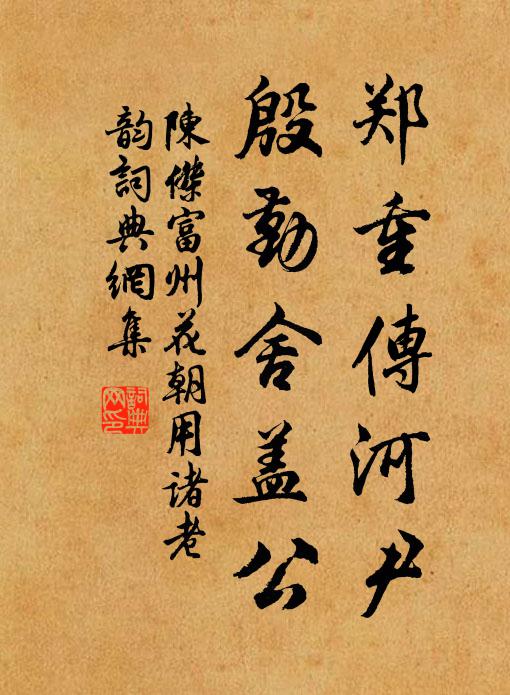 郑重傳河尹
殷勤舍盖公
陳傑富州花朝用诸老
韵詞典網集
詞典
网印